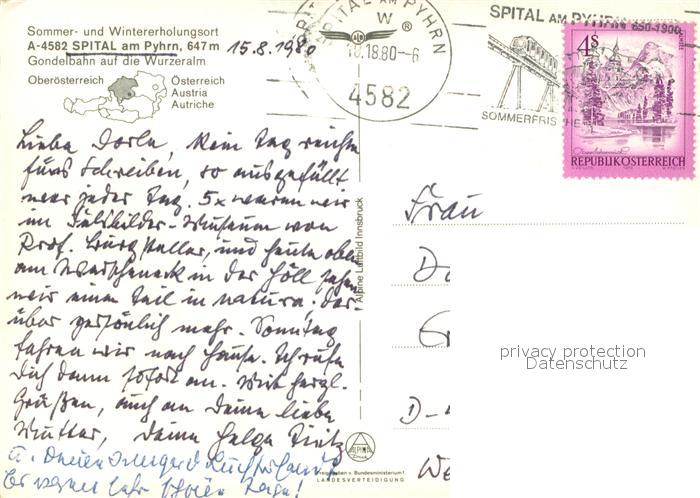 Sommer- und Wintererholungsort
A-4582 SPITAL am Pyhrn, 647 m
Gondelbahn auf die Wurzeralm
15.8.1980
Oberösterreich
Österreich
Austria
Autriche
SPITAL AM PYHRN
W
18.18.80-6
4582
SPITAL AM PYHRN 650-1900
SOMMERFRISCHE
4S
REPUBLIK ÖSTERREICH
Liebe Dorle, kein Tag reichte
fürs Schreiben, so ausgefüllt
war jeder Tag. 5x waren wir
im Felsbilder-Museum von
Prof. Burgstaller, und heute oben
am Warscheneck in der Höll sahen
wir einen Teil in natura. Dar-
über persönlich mehr. Sonntag
fahren wir nach Hause. Ich rufe
Dich dann sofort an. Mit herzl.
Grüßen, auch an Deine liebe
Mutter, Deine Helga
u.
Es waren sehr schöne Tage!
Alpine Luftbild Innsbruck
Frau
D-
privacy protection
Datenschutz
ALPINE
Freigegeben v. Bundesministerium f.
LANDESVERTEIDIGUNG